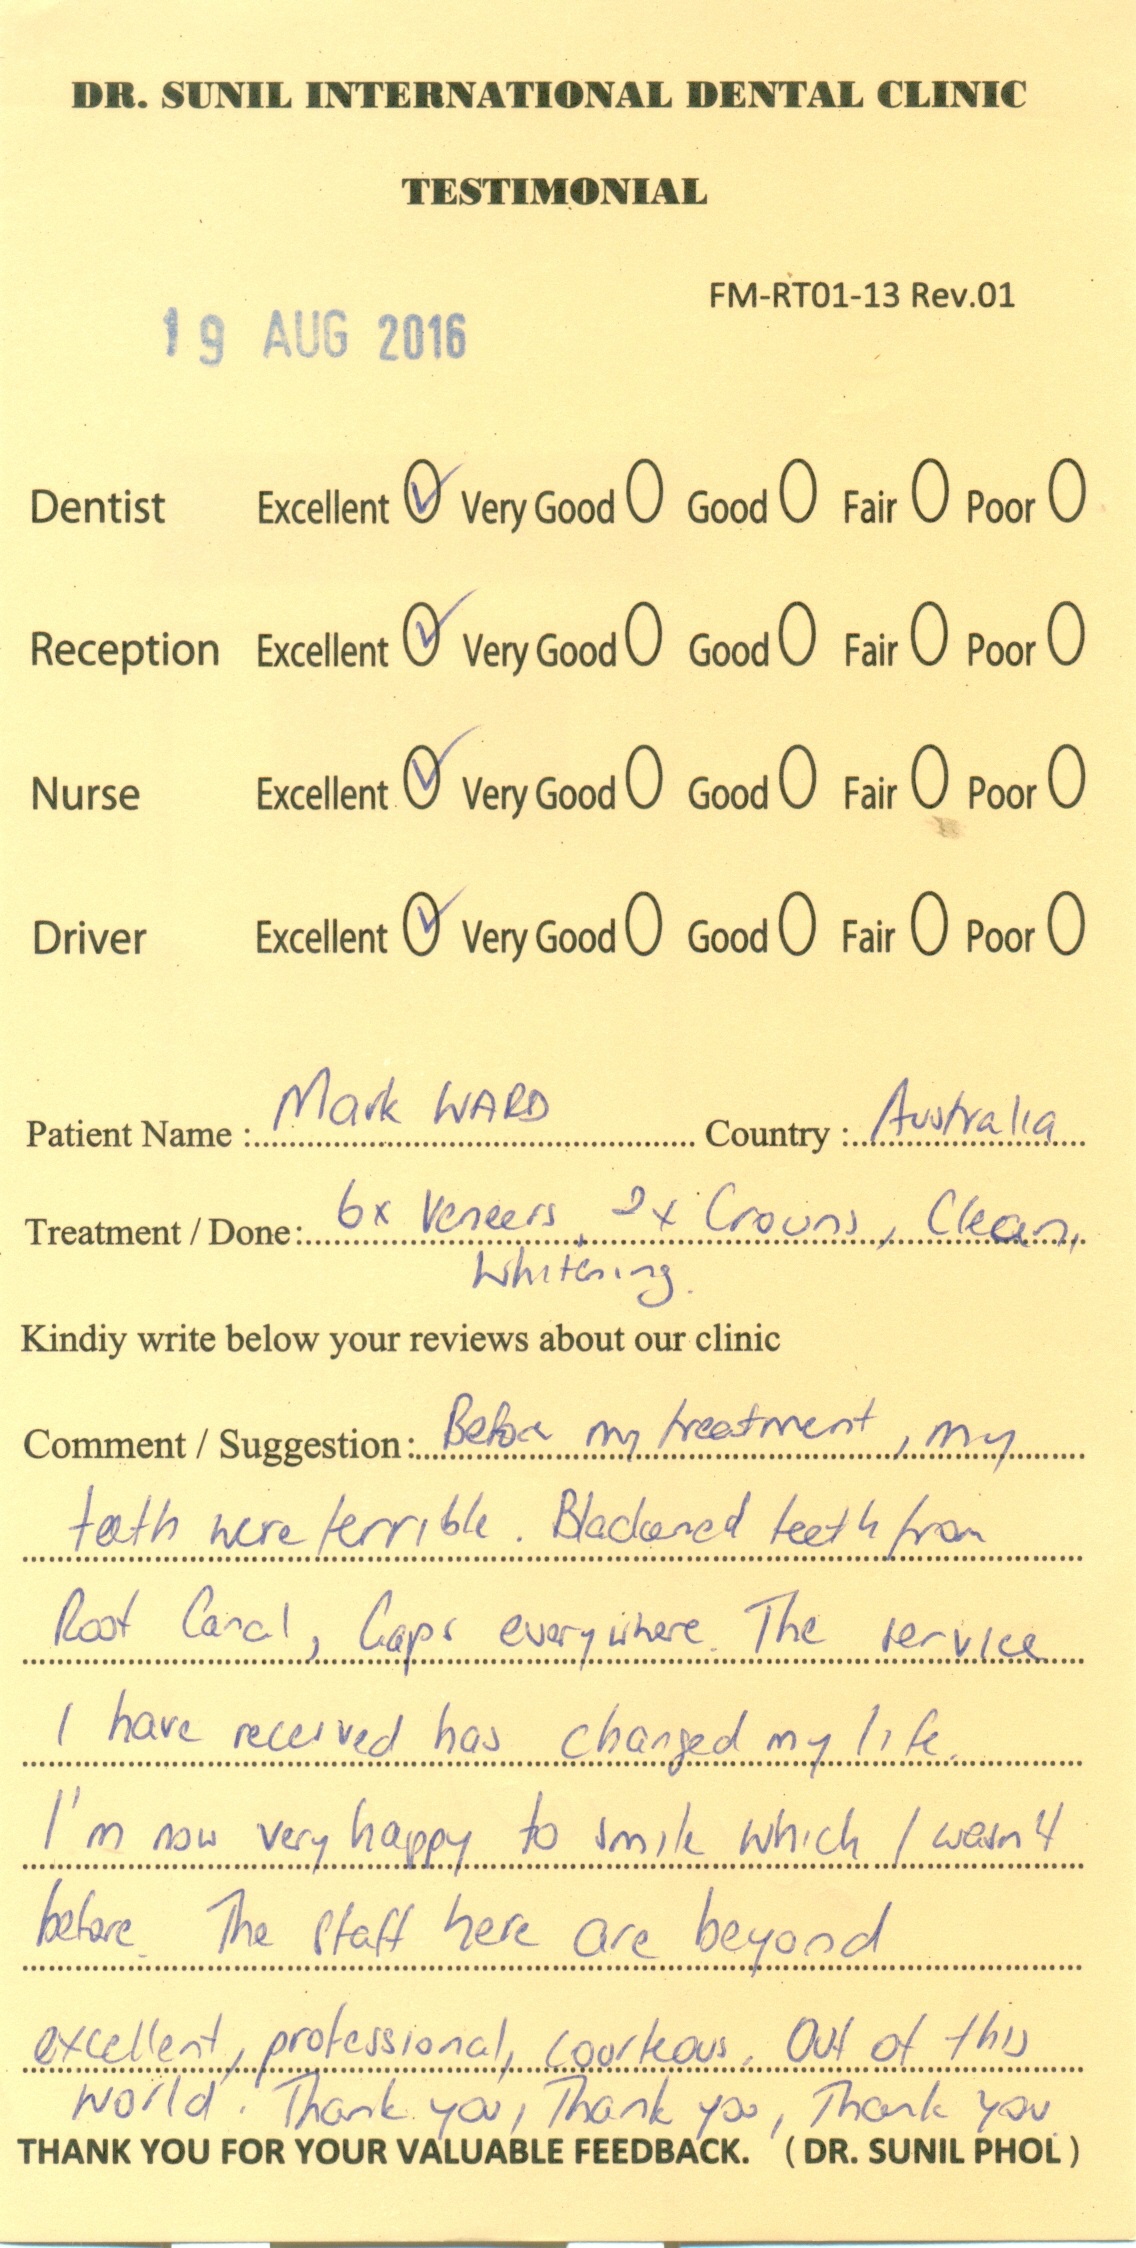 DR. SUNIL INTERNATIONAL DENTAL CLINIC
TESTIMONIAL
FM-RT01-13 Rev.01
19 AUG 2016
Dentist Excellent Very Good Good Fair Poor
Reception Excellent Very Good Good Fair Poor
Nurse Excellent Very Good Good Fair Poor
Driver Excellent Very Good Good Fair Poor
Patient Name : Mark WARD Country : Australia
Treatment / Done: 6x Veneers, 2x Crowns, Clean,
Whitening.
Kindiy write below your reviews about our clinic
Comment / Suggestion: Before my treatment, my
teeth were terrible. Blackened teeth from
Root Canal, Gaps everywhere. The service
I have received has changed my life.
I'm now very happy to smile which I wasn't
before. The staff here are beyond
excellent, professional, courteous. Out of this
world. Thank you, Thank you, Thank you.
THANK YOU FOR YOUR VALUABLE FEEDBACK. ( DR. SUNIL PHOL )